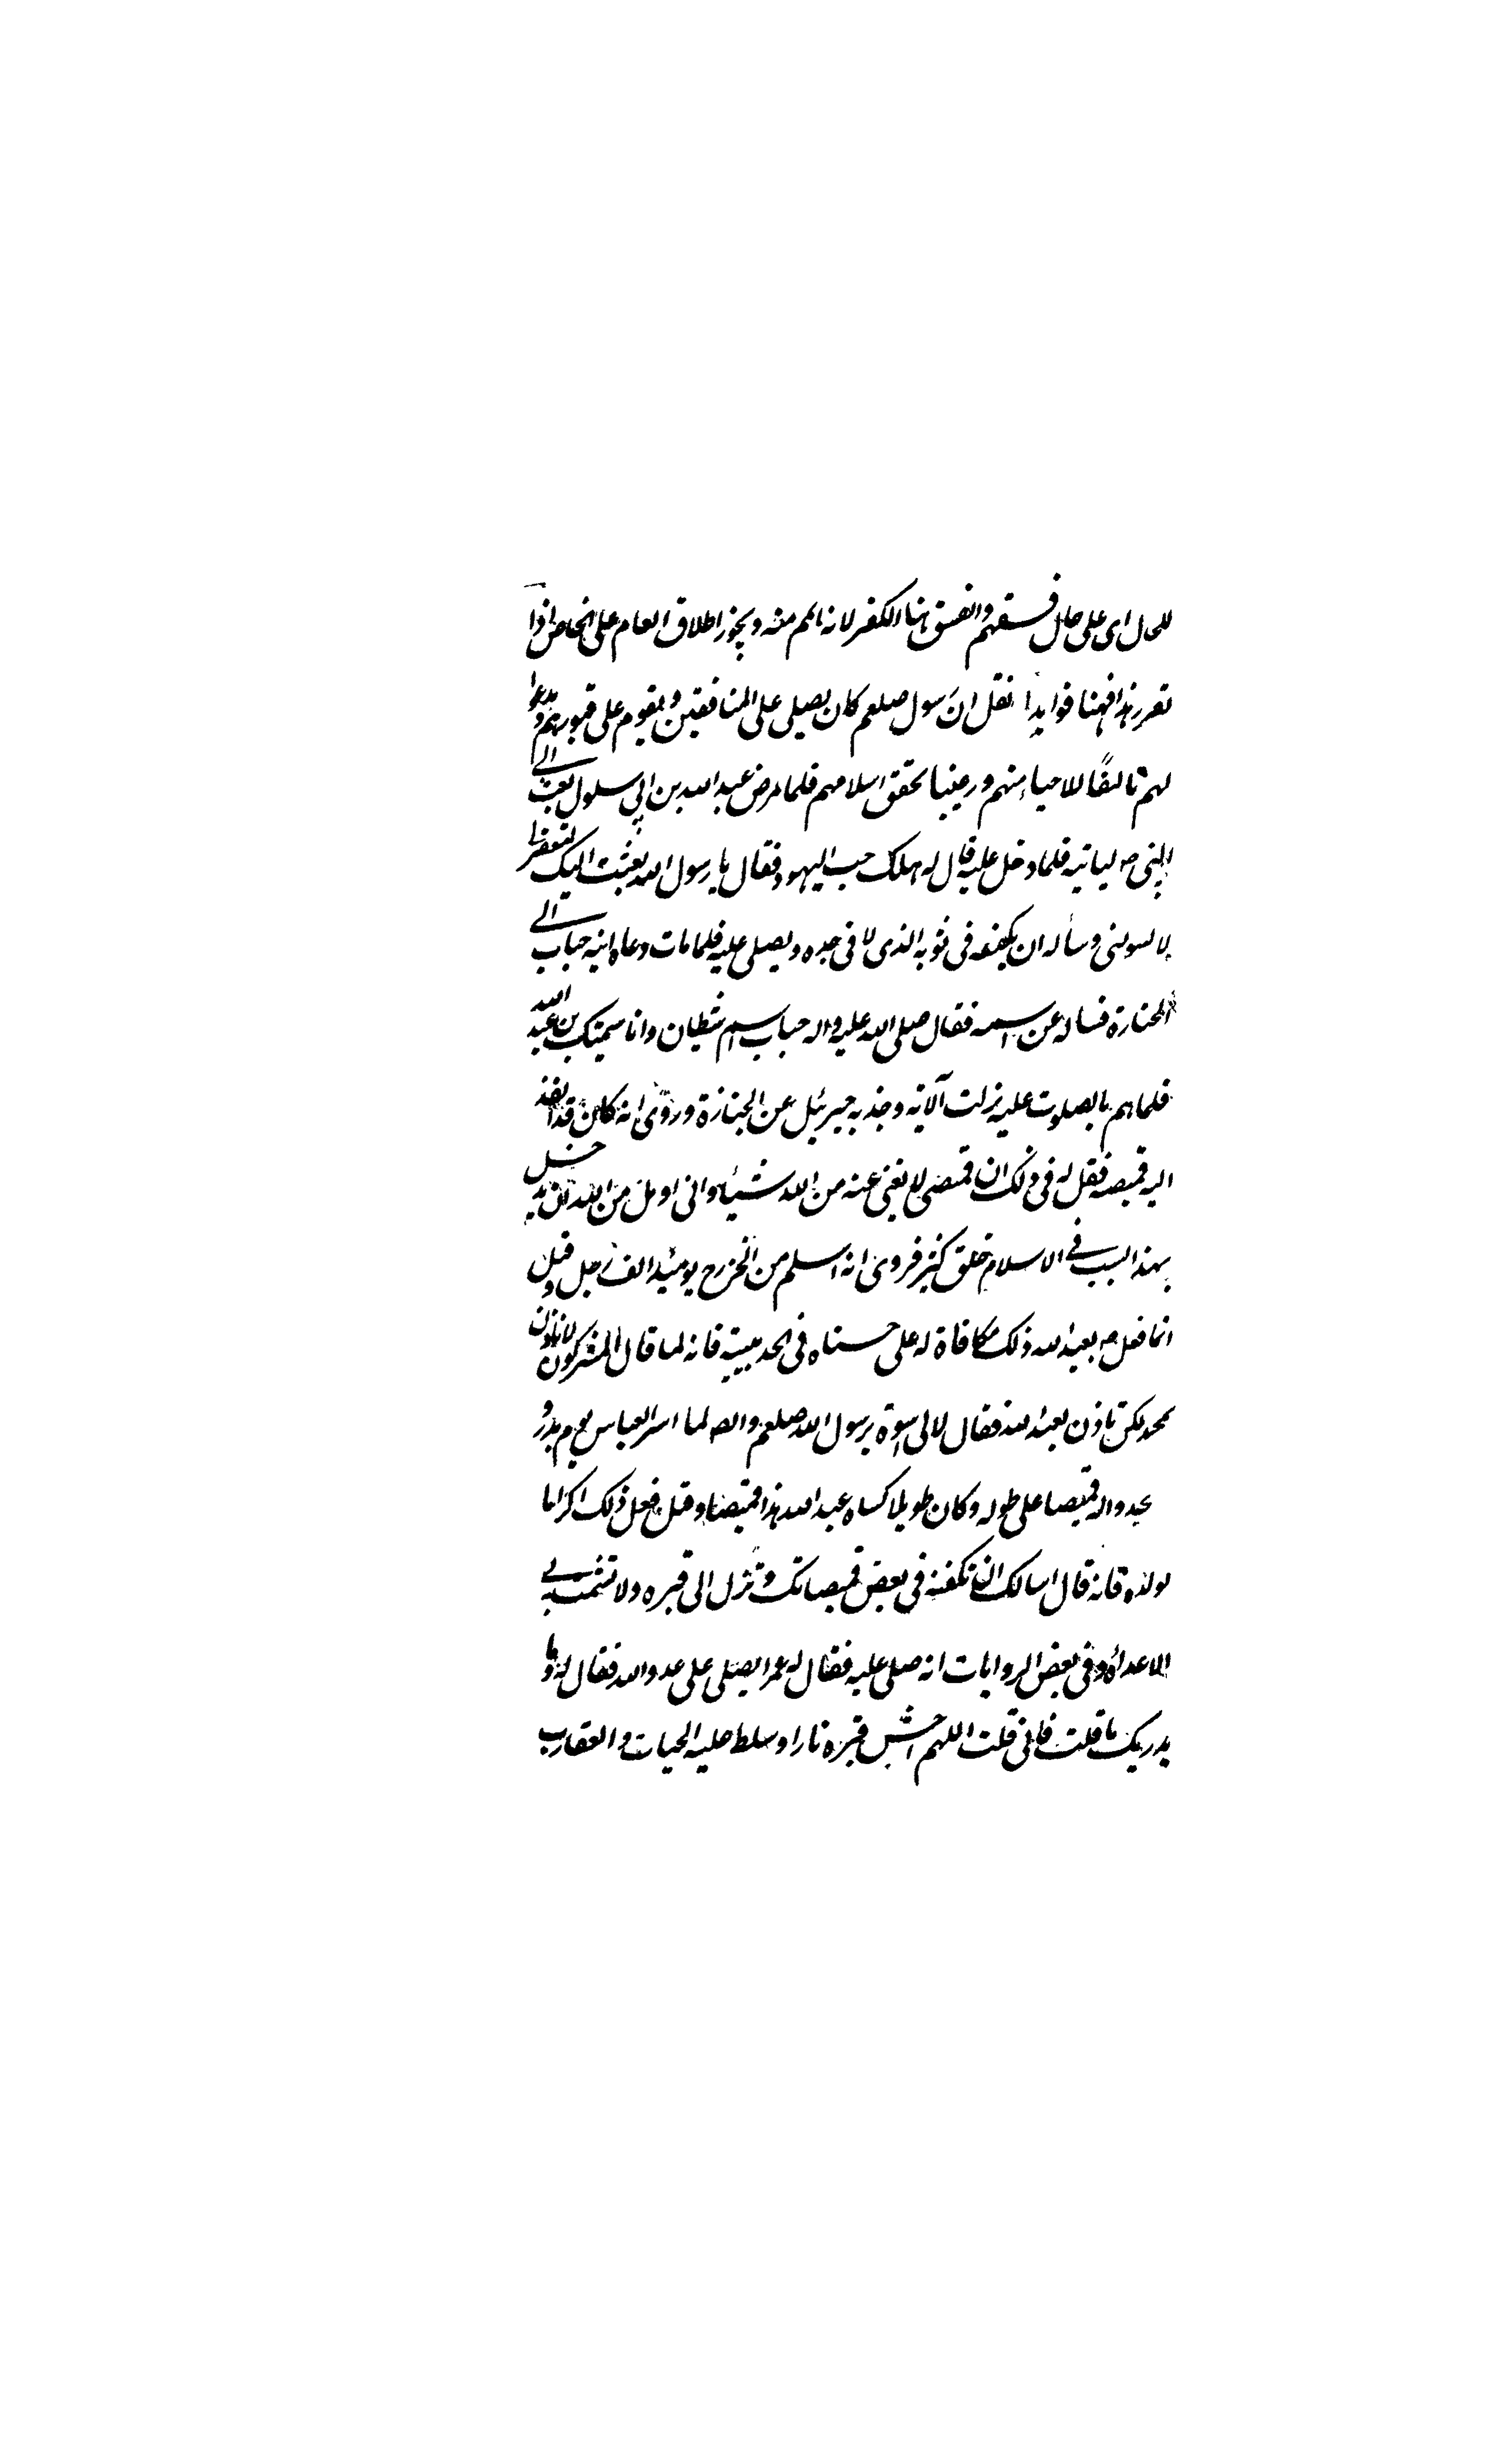 للحال اى على حال فسقهم والفسق هنا الكفر لانه اعم منه ويجوز اطلاق العام على الخاص اذا
تقرر هذا فهنا فوايد ا نقل ان رسول صلعم كان يصلى على المنافقين ويقوم على قبورهم ويدعوا
لهم تالفًا للاحياء منهم ورغيبا لحقق اسلامهم فلما مرض عبد الله بن ابي سلول بعث الى
النبى ص لياتيه فلما دخل عليه قال له اهلك حب اليهود فقال يا رسول الله بعثت اليك لتستغفر لى
لا لتونبنى وسأله ان يكفنه فى ثوبه الذى لا فى جلده ويصلى عليه فلما مات دعاه ابنه حباب الى
الجنازة فساله عن اسمه فقال صلى الله عليه واله حباب اسم شيطان وانا سميتك بن عبد الله
فلما هم بالصلوت عليه نزلت الآية وجذبه جبرئيل عن الجنازة وروى انه كان قد انفذ
اليه قميصه فقيل له فى ذلك ان قميصى لا يغنى عنه من الله شيئا وانى اومل من الله ان يدخل
بهذا السبب في الاسلام خلق كثير فروى انه اسلم من الخزرج يومئذ الف رجل وقيل
انما فعل ص بعبد الله ذلك مكافاة له على حسناه فى الحديبية فانه لما قال المشركون لا ناذن
لمحمد لكن ناذن لعبد الله فقال لا لى اسوة برسول الله صلعم واله لما اسر العباس يوم بدر و
يجدوا له قميصا على طوله وكان طويلا كساه عبد الله هذا قميصا وقيل فعل ذلك اكراما
لولده فانه قال اسالك ان تكفنه فى بعض قميصانك وتنزل الى قبره ولا تشمت بي
الاعداء وفى بعض الروايات انه صلى عليه فقال له عمر ايصلى على عدو الله فقال له وما
يدريك ما قلت فانى قلت اللهم احش قبره نارا وسلط عليه الحيات والعقارب